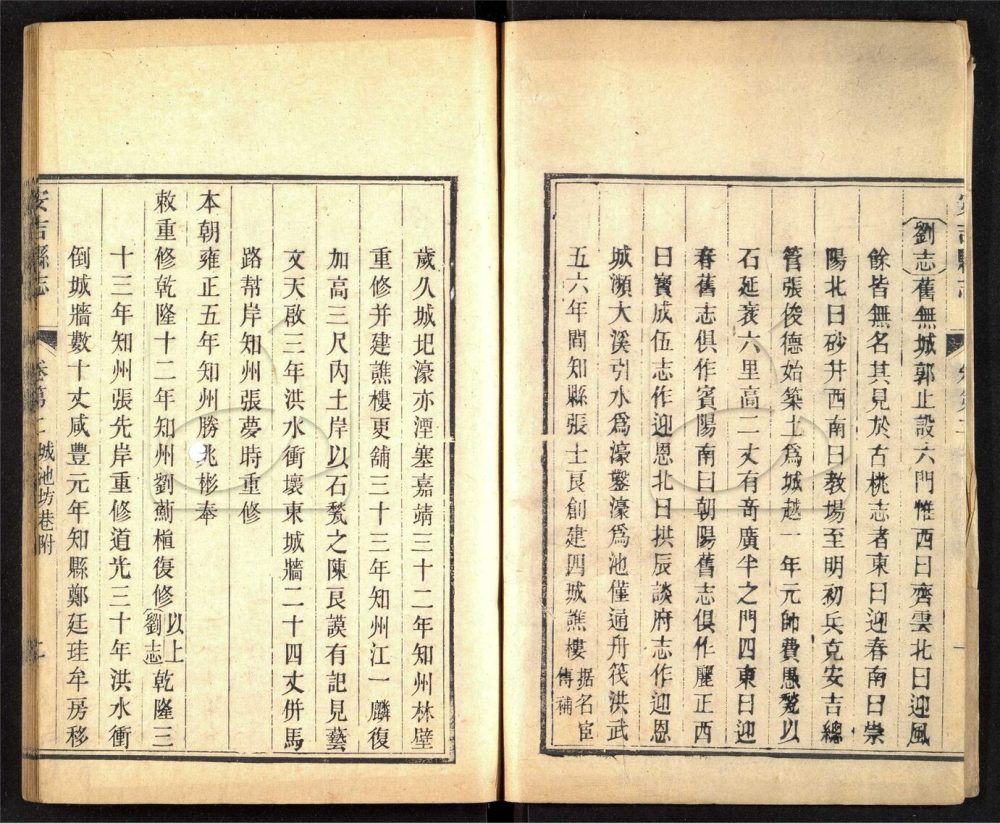 劉志舊無城郭止設六門惟西曰齊雲北曰迎風
餘皆無名其見於古桃志者東曰迎春南曰崇
陽北曰砂井西南曰教場至明初兵克安吉總
管張俊德始築土為城越一年元帥費愚甃以
石延袤六里高二丈有奇廣半之門四東曰迎
春舊志俱作賓陽南曰朝陽舊志俱作麗正西
曰寶成伍志作迎恩北曰拱辰談府志作迎恩
城瀕大溪引水為濠鑿濠為池僅通舟筏洪武
五六年間知縣張士良創建四城譙樓据名宦傳補
歲久城圯濠亦湮塞嘉靖三十二年知州林壁
重修并建譙樓更舖三十三年知州江一麟復
加高三尺內土岸以石甃之陳良謨有記見藝
文天啟三年洪水衝壞東城牆二十四丈併馬
路幫岸知州張夢時重修
本朝雍正五年知州勝兆彬奉
敕重修乾隆十二年知州劉薊植復修以上劉志乾隆三
十三年知州張先岸重修道光三十年洪水衝
倒城牆數十丈咸豐元年知縣鄭廷珪牟房移
安吉縣志
卷第二
城池坊巷附